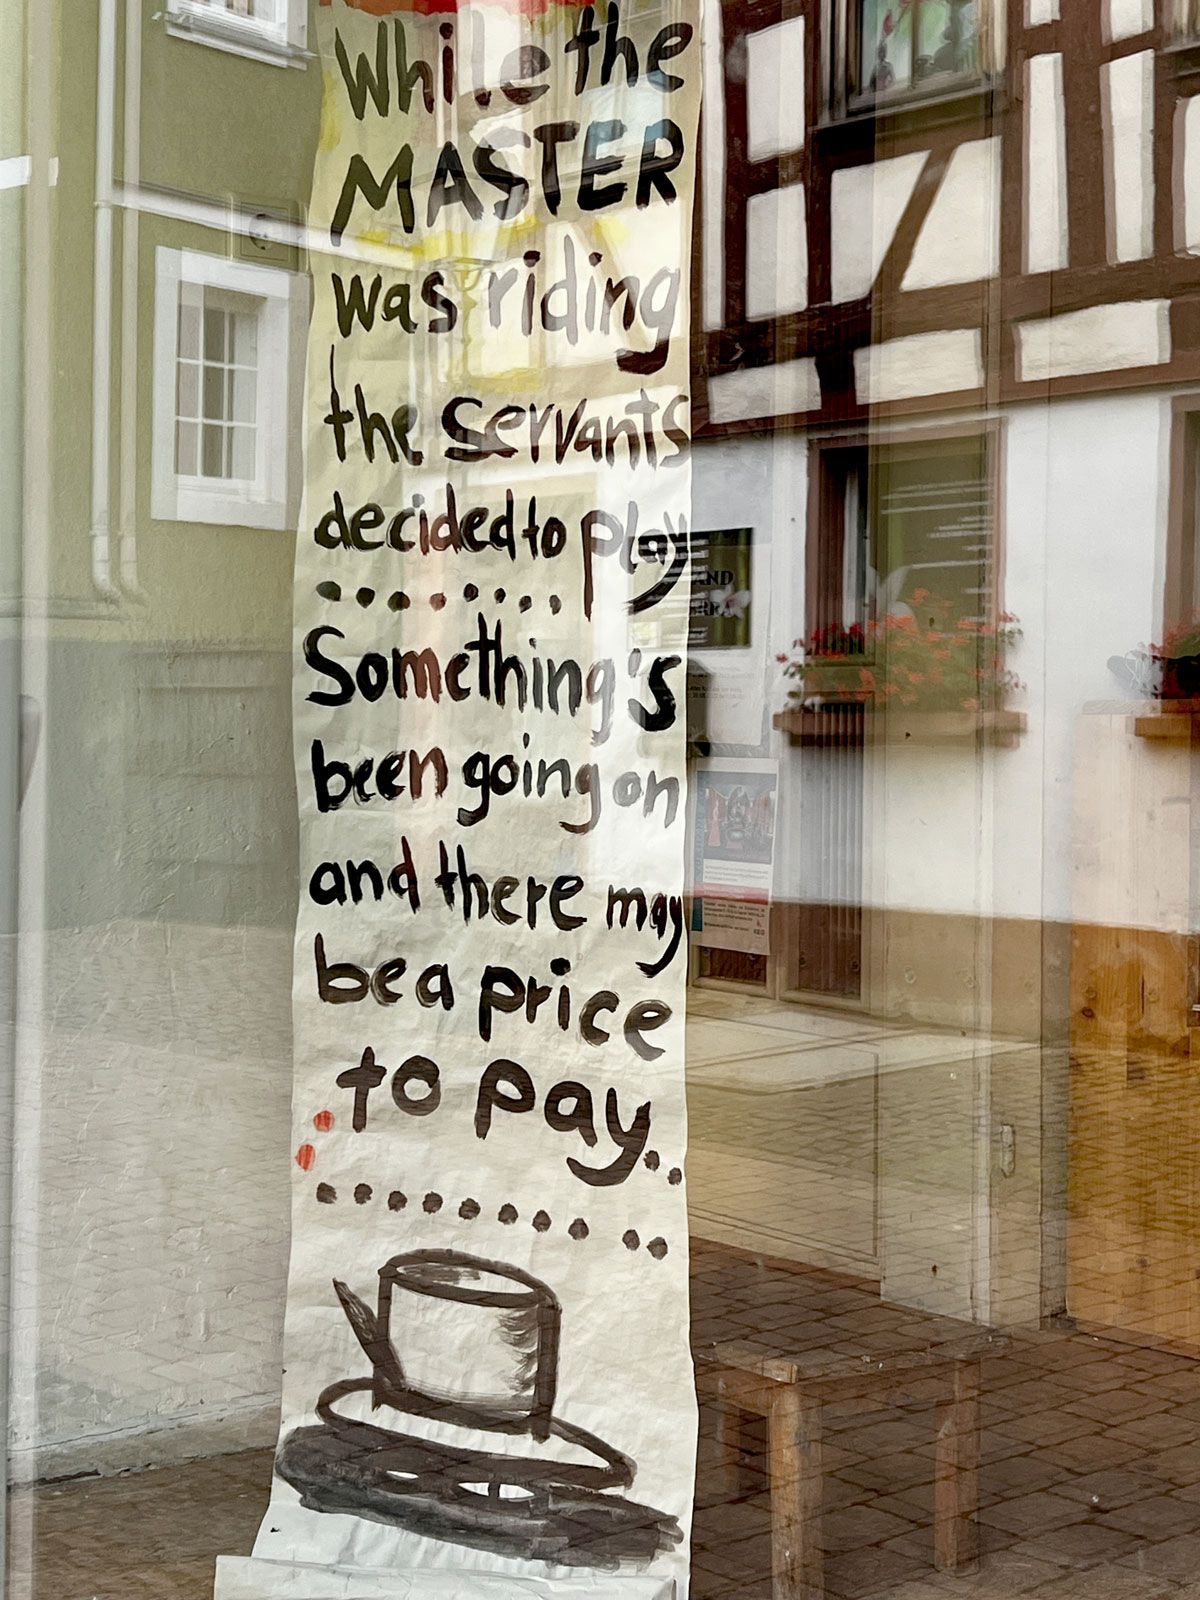 While the
MASTER
was riding
the servants
decided to play
........
Something's
been going on
and there may
be a price
to pay..
..........